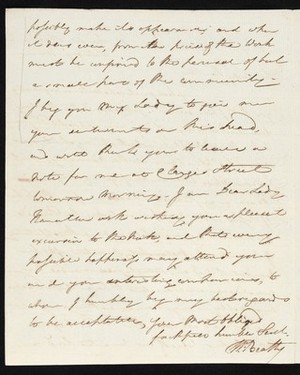 possibly make its appearance and when
it does even, from the price of the Work
must be confined to the perusal of but
a small part of the community—
I beg you My Lady to give me
your sentiments on this head,
and will thank you to leave a
note for me at Clarges Street
tomorrow Morning. I am Dear Lady
Hamilton with wishing you a pleasant
excursion to the and that every
possible happiness may attend you
and your interesting
whom I humbly beg my best regards
to be acceptable, your Most Obliged
faithful humble Servt.
W Beatty